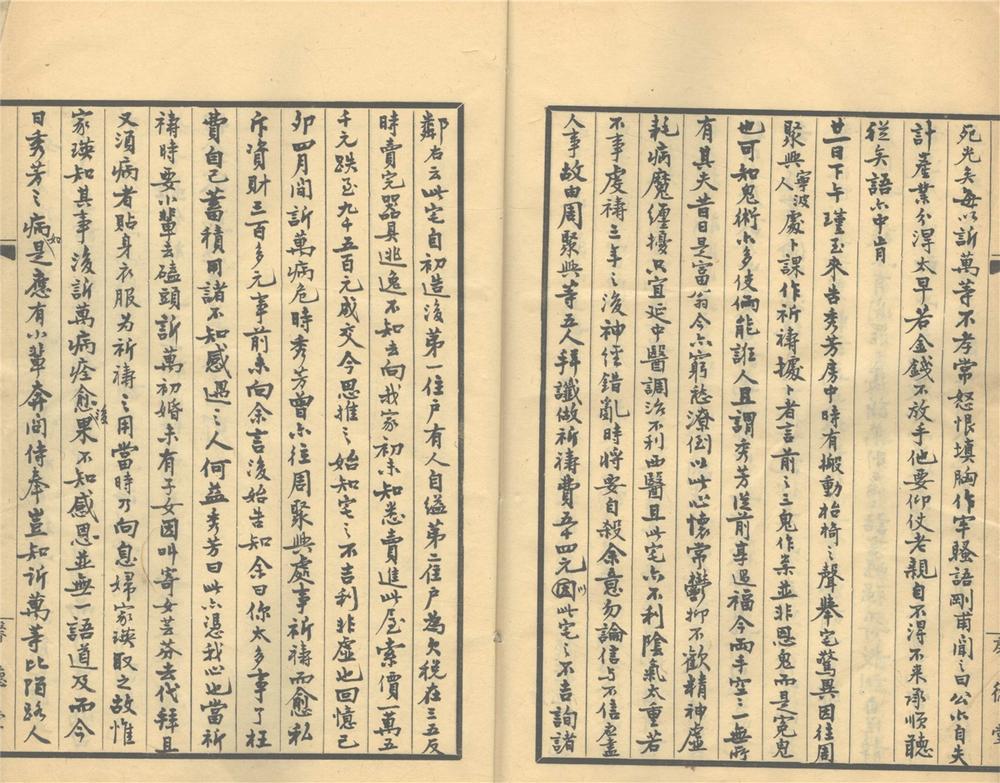 死光矣每以訢萬等不孝常怒恨填胸作牢騷語剛甫聞之曰公亦自失
計產業分淂太早若金錢不放手他要仰仗老親自不得不來承順聽
從矣語亦中肯
廿一日下午瑾玉來告秀芳房中時有搬動枱椅之聲舉宅驚異因往周
聚興寧波人處卜課作祈禱據卜者言前之三鬼作祟並非恩鬼而是寃鬼
也可知鬼術亦多使倆能誑人且謂秀芳從前享過福今兩手空之一無所
有其夫昔日是富翁今亦窮愁潦倒以此心懷常鬱抑不歡精神虛
耗病魔纏擾只宜延中醫調治不利西醫且此宅亦不利陰氣太重若
不事虔禱三年之後神經錯亂時將要自殺余意勿論信与不信應盡
人事故由周聚興等五人拜讖做祈禱費五十四元因以此宅之不吉詢諸
鄰右云此宅自初造後第一住戶有人自縊第二住戶為欠稅在三五反
時賣完器具逃逸不知去向我家初未知悉賣進此屋索價一萬五
千元跌至九千五百元成交今思推之始知宅之不吉利非虛也回憶已
卯四月間訢萬病危時秀芳曾亦往周聚興處事祈禱而愈私
斥資財三百多元事前未向余言後始告知余曰你太多事了枉
費自己蓄積用諸不知感遇之人何益秀芳曰此亦憑我心也當祈
禱時要小輩去磕頭訢萬初婚未有子女因叫寄女芸芬去代拜且
又須病者貼身衣服為祈禱之用當時乃向息婦家瑛取之故惟
家瑛知其事後訢萬病痊愈後果不知感恩並無一語道及而今
日秀芳之病如是應有小輩奔問侍奉豈知訢萬等比陌路人